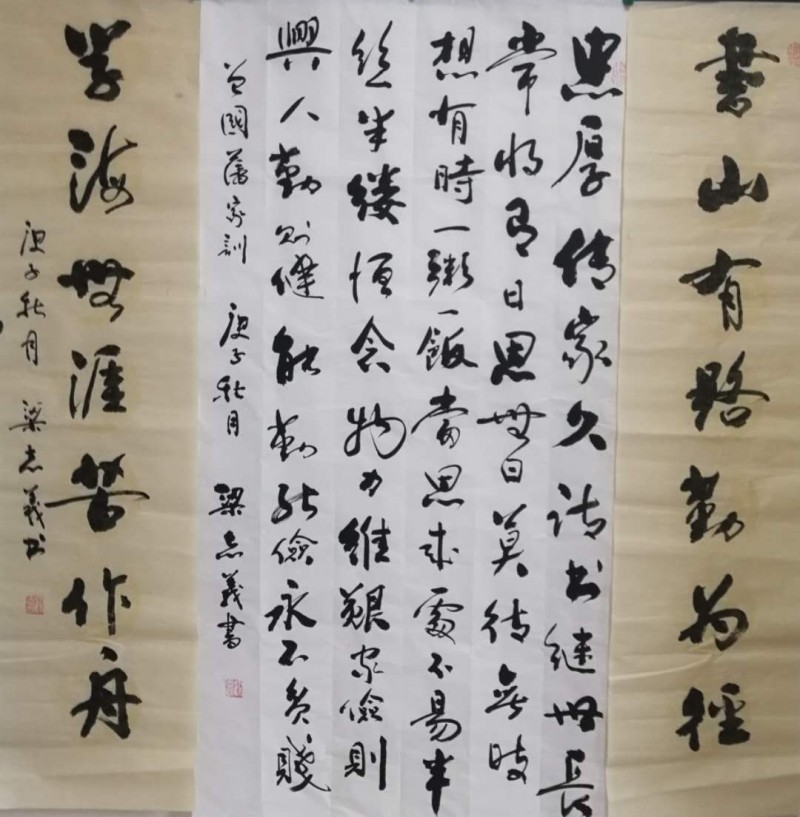 書山有路勤为徑
忠厚传家久诗书継世長
常将有日思無日莫待無時
想有時一粥一飯當思来處不易半
丝半缕恒念物力維艱家儉則
興人勤则健能勤能儉永不貧賤
曾國藩家訓 庚子秋月 梁志義書
学海無涯苦作舟
庚子秋月 梁志義书